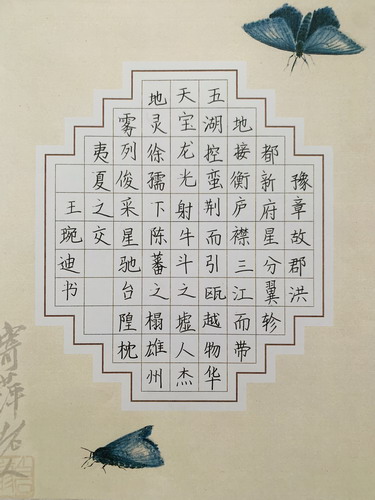 豫章故郡洪
都新府星分翼轸
地接衡庐襟三江而带
五湖控蛮荆而引瓯越物华
天宝龙光射牛斗之墟人杰
地灵徐孺下陈蕃之榻雄州
雾列俊采星驰台隍枕
夷夏之交
王琬迪书
寄萍老人